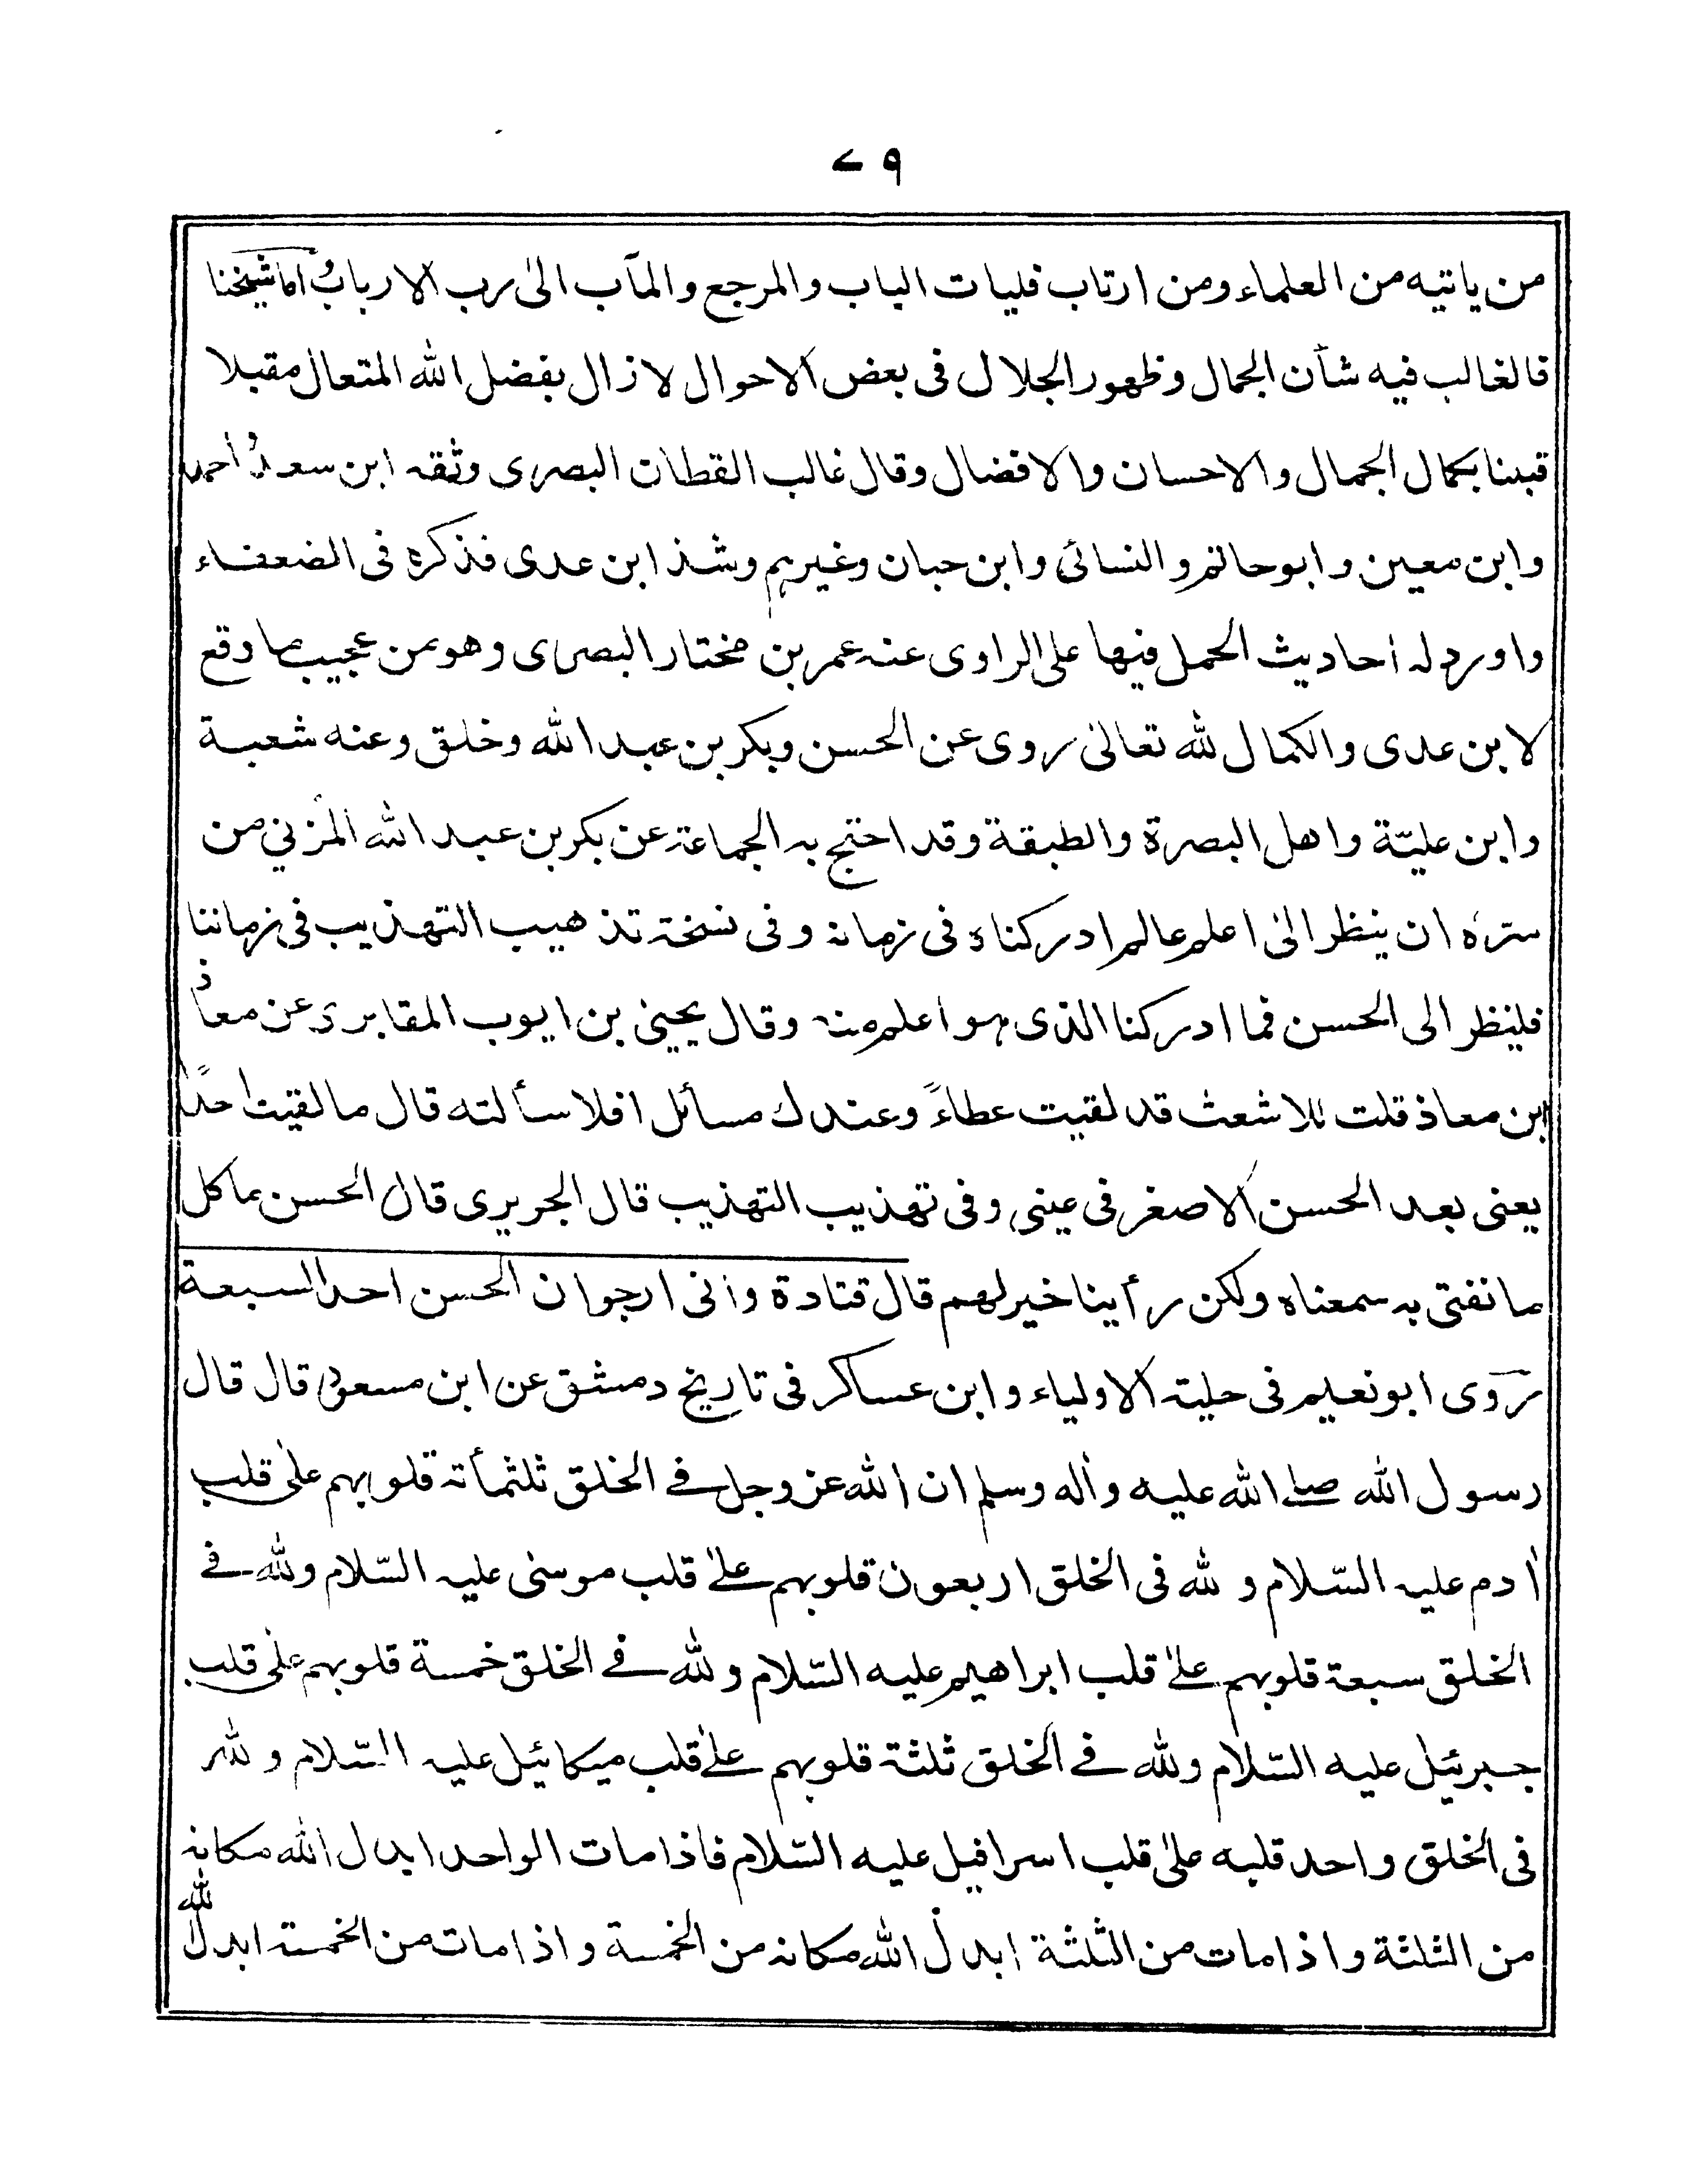 ٧٩
من ياتيه من العلماء ومن ارتاب فليات الباب والمرجع والمآب الى رب الارباب واما شيخنا
فالغالب فيه شأن الجمال وظهور الجلال فى بعض الاحوال لازال بفضل الله المتعال مقبلا
قبلنا بكمال الجمال والاحسان والافضال وقال غالب القطان البصرى وثقه ابن سعد واحمد
وابن معين وابوحاتم والنسائى وابن حبان وغيرهم وشذ ابن عدى فذكره فى الضعفاء
واورد له احاديث الحمل فيها على الراوى عنه عمر بن مختار البصرى وهو من عجيب ما وقع
لابن عدى والكمال لله تعالى روى عن الحسن وبكر بن عبد الله وخلق وعنه شعبة
وابن عليّة واهل البصرة والطبقة وقد احتج به الجماعة عن بكر بن عبد الله المزني من
سرّه ان ينظر الى اعلم عالم ادركناه فى زمانه وفى نسخة تذهيب التهذيب فى زماننا
فلينظر الى الحسن فما ادركنا الذى هو اعلم منه وقال يحيى بن ايوب المقابرى عن معاذ
ابن معاذ قلت للاشعث قد لقيت عطاءً وعندك مسائل افلا سألته قال ما لقيت احدًا
يعنى بعد الحسن الا صغر فى عينى وفى تهذيب التهذيب قال الجريرى قال الحسن ما كل
ما نفتى به سمعناه ولكن رأينا خير لهم قال قتادة وانى ارجو ان الحسن احد السبعة
روى ابو نعيم فى حلية الاولياء وابن عساكر فى تاريخ دمشق عن ابن مسعود قال قال
رسول الله صلى الله عليه وأله وسلم ان الله عز وجل فى الخلق ثلثمأته قلوبهم على قلب
أدم عليه السّلام و لله فى الخلق اربعون قلوبهم على قلب موسى عليه السّلام ولله فى
الخلق سبعة قلوبهم على قلب ابراهيم عليه السّلام ولله فى الخلق خمسة قلوبهم على قلب
جبرئيل عليه السّلام ولله فى الخلق ثلثة قلوبهم على قلب ميكائيل عليه السّلام و لله
فى الخلق واحد قلبه على قلب اسرافيل عليه السّلام فاذا مات الواحد ابدل الله مكانه
من الثلثة واذا مات من الثلثة ابدل الله مكانه من الخمسة واذا مات من الخمسة ابدل الله